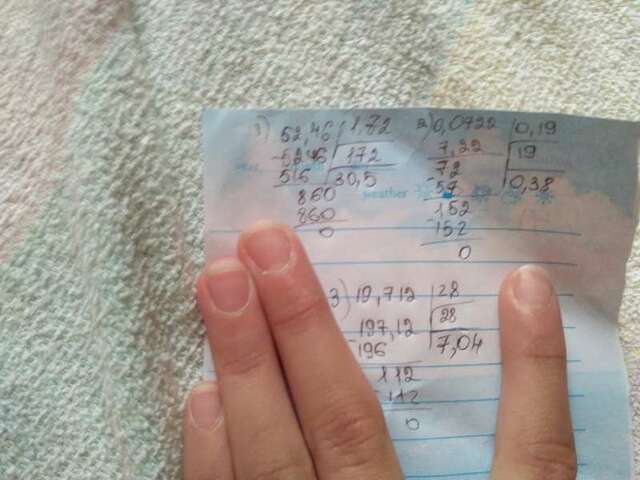 1) 52,46 1,72
-5246 172
516 30,5
860
860
0
2) 0,0722 0,19
7,22 19
72 0,38
-57
152
-152
0
weather
3) 19,712 28
197,12 28
-196 7,04
112
112
0